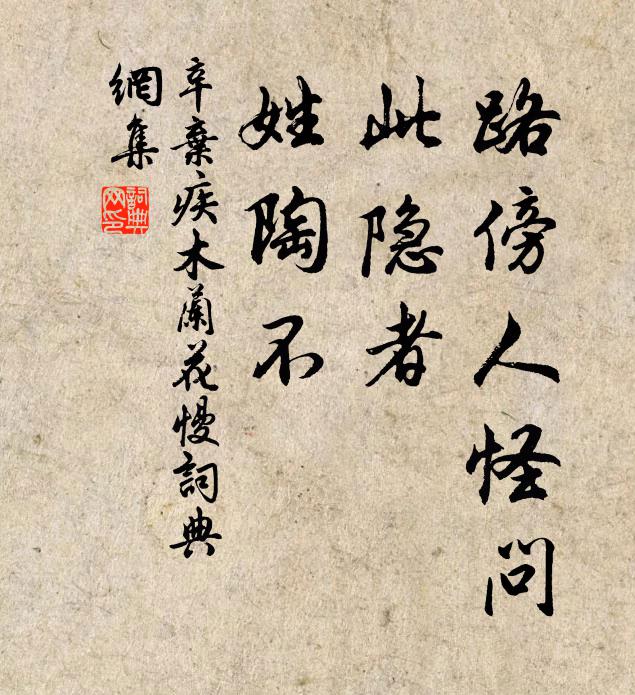 路傍人怪问
此隐者
姓陶不
辛棄疾木蘭花慢詞典
網集
詞典
网印